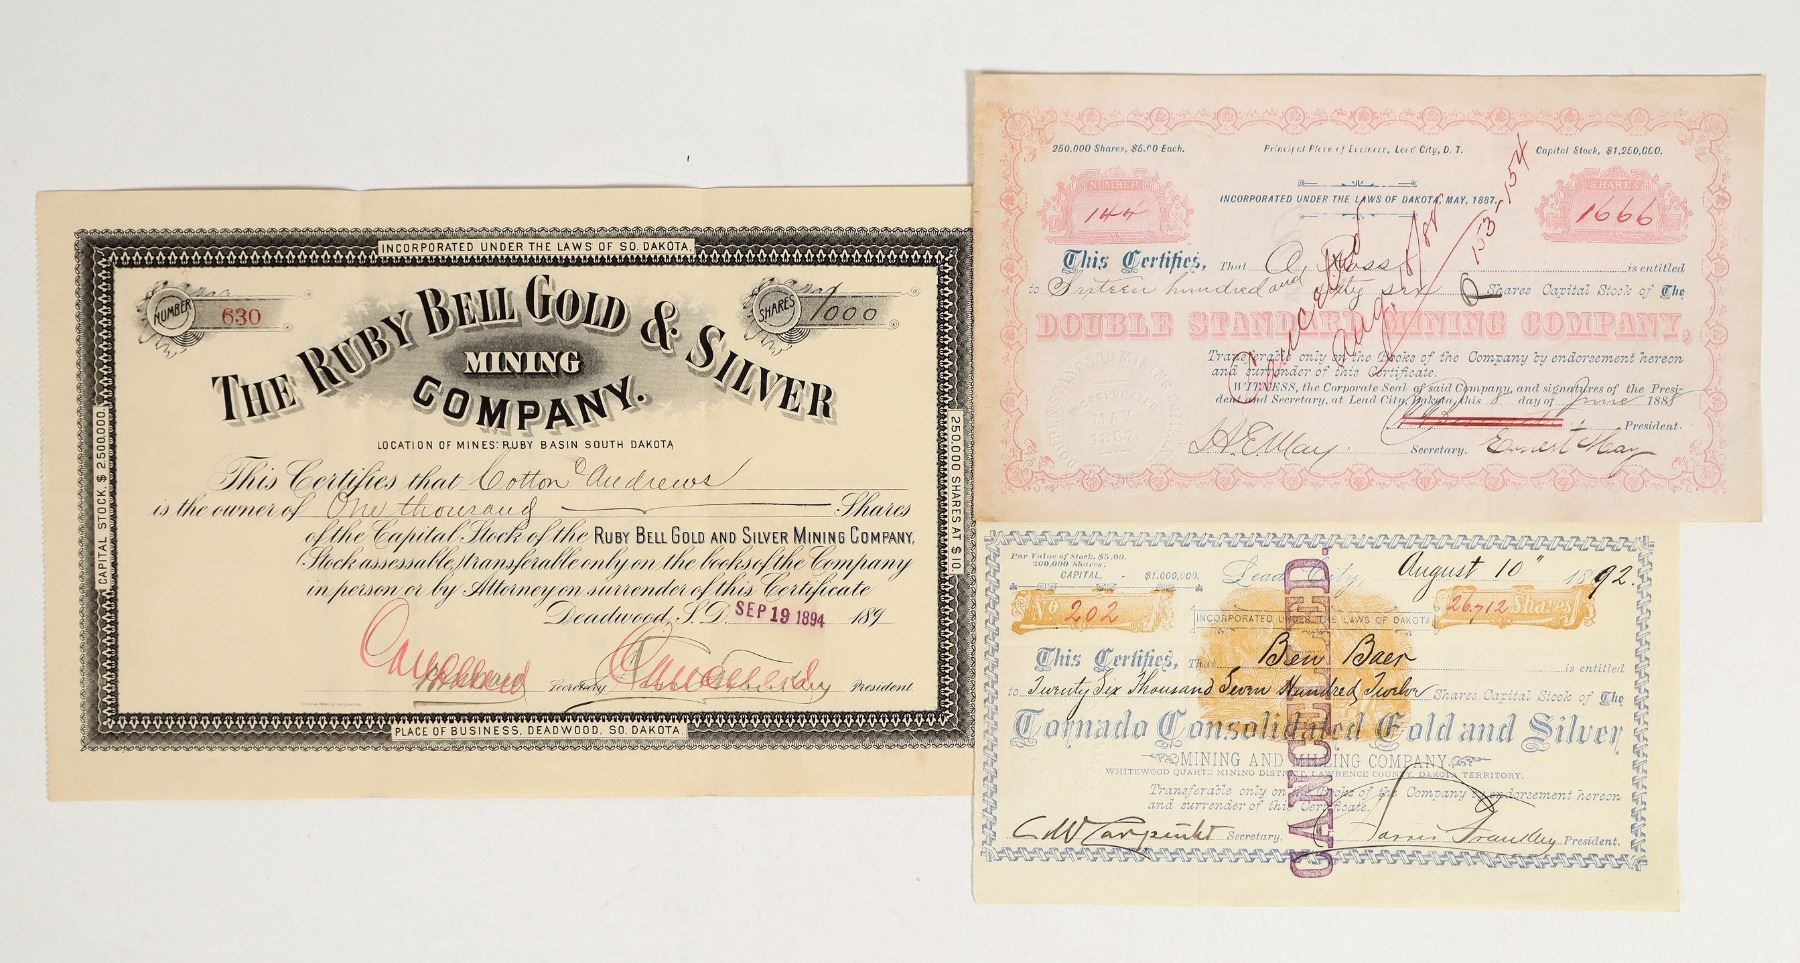 INCORPORATED UNDER THE LAWS OF SO. DAKOTA.
NUMBER 630
SHARES 1000
THE RUBY BELL GOLD & SILVER
MINING
COMPANY.
LOCATION OF MINES: RUBY BASIN SOUTH DAKOTA
CAPITAL STOCK, $2,500,000.
250,000 SHARES AT $10.
This Certifies that Cotton & Andrews
is the owner of One thousand Shares
of the Capital Stock of the RUBY BELL GOLD AND SILVER MINING COMPANY,
Stock assessable, transferable only on the books of the Company
in person or by Attorney on surrender of this Certificate
Deadwood, S.D. SEP 19 1894 189
Cancelled Cancelled
Secretary President
PLACE OF BUSINESS, DEADWOOD, SO. DAKOTA.
250,000 Shares, $5.00 Each. Principal Place of Business, Lead City, D. T. Capital Stock, $1,250,000.
NUMBER SHARES
INCORPORATED UNDER THE LAWS OF DAKOTA, MAY, 1887.
144 1666
This Certifies, That A. Ross is entitled
to Sixteen hundred and sixty six Shares Capital Stock of The
DOUBLE STANDARD MINING COMPANY,
Transferable only on the Books of the Company by endorsement hereon
and surrender of this Certificate.
WITNESS, the Corporate Seal of said Company, and signatures of the Presi-
dent and Secretary, at Lead City, Dakota, this 8 day of June 1888
President.
H. E. May. Secretary. Ernest May
Cancelled
Aug. 8/88
153-154
Par Value of Stock, $5.00.
200,000 Shares.
CAPITAL, - $1,000,000.
Lead City, August 10" 1892.
No 202 26,712 Shares
INCORPORATED UNDER THE LAWS OF DAKOTA
This Certifies, That Ben Baer is entitled
to Twenty Six Thousand Seven Hundred Twelve Shares Capital Stock of The
Tornado Consolidated Gold and Silver
MINING AND MILLING COMPANY.
WHITEWOOD QUARTZ MINING DISTRICT, LAWRENCE COUNTY, DAKOTA TERRITORY.
Transferable only on the Books of the Company by endorsement hereon
and surrender of this Certificate.
C W Carpenter Secretary. Harris Franklin President.
CANCELLED.